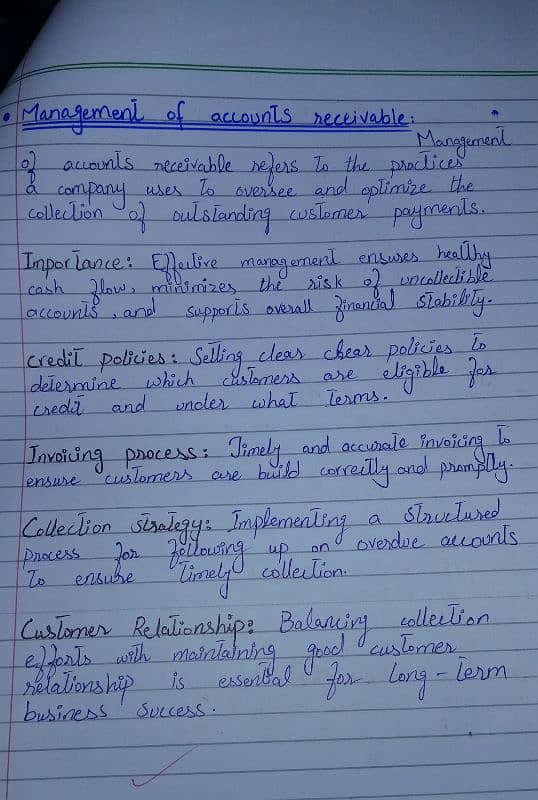 • Management of accounts receivable:
Management
of accounts receivable refers to the practices
a company uses to oversee and optimize the
collection of outstanding customer payments.
Importance: Effective management ensures healthy
cash flow, minimizes the risk of uncollectible
accounts, and supports overall financial stability.
Credit policies: Selling clear clear policies to
determine which customers are eligible for
credit and under what terms.
Invoicing process: Timely and accurate invoicing to
ensure customers are build correctly and promptly.
Collection strategy: Implementing a structured
process for following up on overdue accounts
to ensure timely collection.
Customer Relationship: Balancing collection
efforts with maintaining good customer
relationship is essential for long-term
business success.